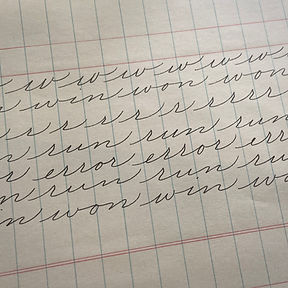 w w w w w w w
n win won won
r r r r r r r r r r
n run run run
r error error err
n run run ru
n won win wo